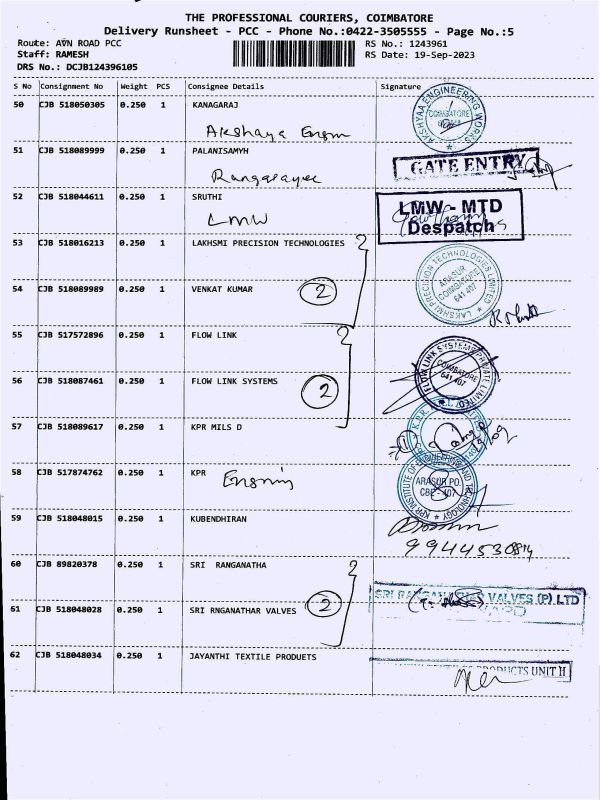 THE PROFESSIONAL COURIERS, COIMBATORE
Delivery Runsheet - PCC - Phone No.:0422-3505555 - Page No.:5
Route: AVN ROAD PCC
RS No.: 1243961
Staff: RAMESH
RS Date: 19-Sep-2023
DRS No.: DCJB124396105
S No Consignment No Weight PCS Consignee Details Signature
50 CJB 518050305 0.250 1 KANAGARAJ
Akshaya Engm
AKSHYAA ENGINEERING WORKS
COIMBATORE
51 CJB 518089999 0.250 1 PALANISAMYH
GATE ENTRY
52 CJB 518044611 0.250 1 SRUTHI
LMW
LMW - MTD
Despatch
53 CJB 518016213 0.250 1 LAKHSMI PRECISION TECHNOLOGIES
LAKSHMI PRECISION TECHNOLOGIES LIMITED
ARASUR
COIMBATORE
641 407
54 CJB 518089989 0.250 1 VENKAT KUMAR
2
55 CJB 517572896 0.250 1 FLOW LINK
FLOW LINK SYSTEMS PRIVATE LIMITED
COIMBATORE
641 407
56 CJB 518087461 0.250 1 FLOW LINK SYSTEMS
2
57 CJB 518089617 0.250 1 KPR MILS D
58 CJB 517874762 0.250 1 KPR
KPR INSTITUTE OF ENGINEERING AND TECHNOLOGY
ARASUR PO.
CBE - 407
59 CJB 518048015 0.250 1 KUBENDHIRAN
60 CJB 89820378 0.250 1 SRI RANGANATHA
2
SRI RANGANATHAR VALVES (P) LTD
61 CJB 518048028 0.250 1 SRI RNGANATHAR VALVES
62 CJB 518048034 0.250 1 JAYANTHI TEXTILE PRODUETS
PRODUCTS UNIT II